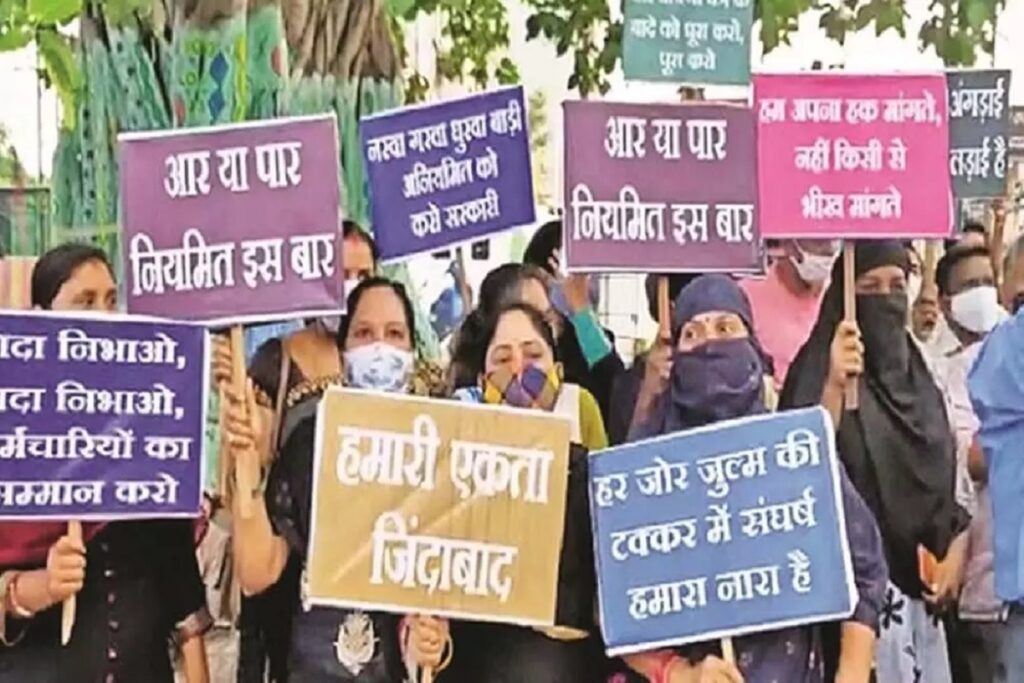 वादे को पूरा करो,
पूरा करो
आर या पार
नियमित इस बार
नरवा गरवा घुरवा बाड़ी
अनियमित को
करो सरकारी
आर या पार
नियमित इस बार
हम अपना हक मांगते,
नहीं किसी से
भीख मांगते
अंगड़ाई
लड़ाई है
निभाओ,
निभाओ,
का
सम्मान करो
हमारी एकता
जिंदाबाद
हर जोर जुल्म की
टक्कर में संघर्ष
हमारा नारा है